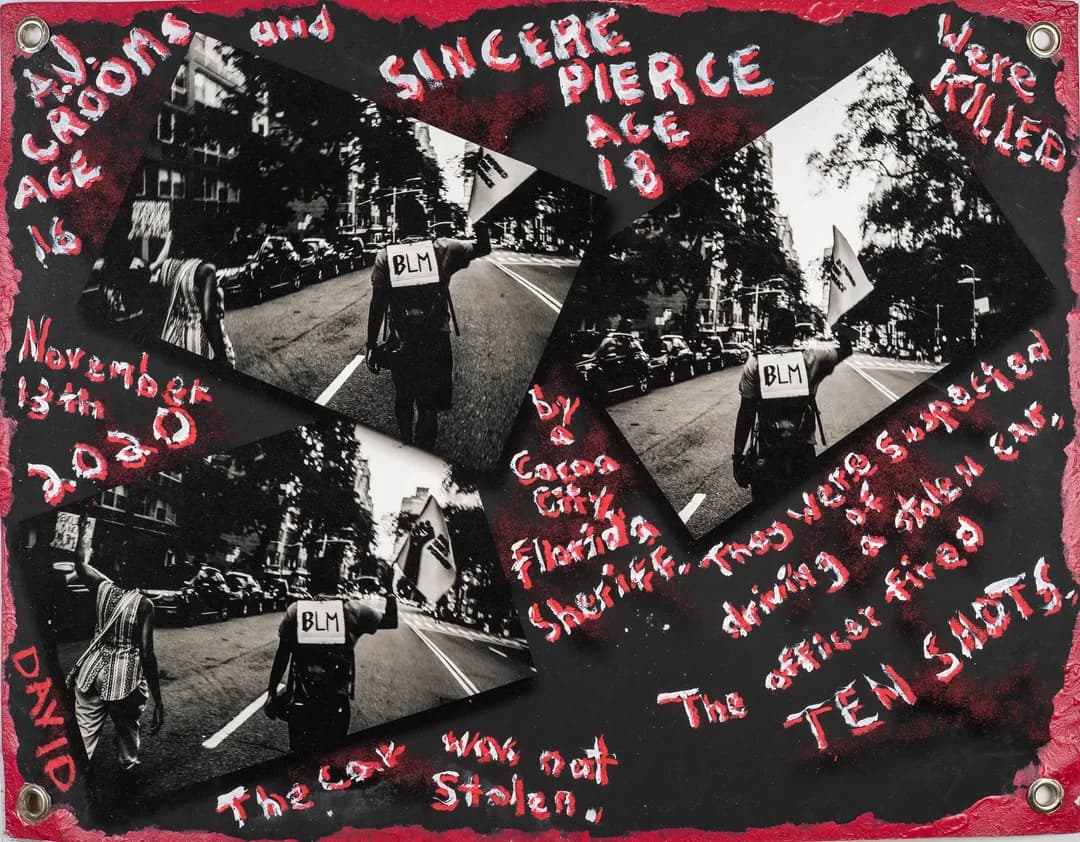 A.J.
CROOMS
AGE
16
and
SINCERE
PIERCE
AGE
18
were
KILLED
November
13th
2020
by
a
Cocoa
City
Florida
Sheriff.
They were suspected
of
driving a stolen car,
The officer fired
TEN SHOTS.
The car was not
Stolen.
BLM
BLM
BLM
DAVID